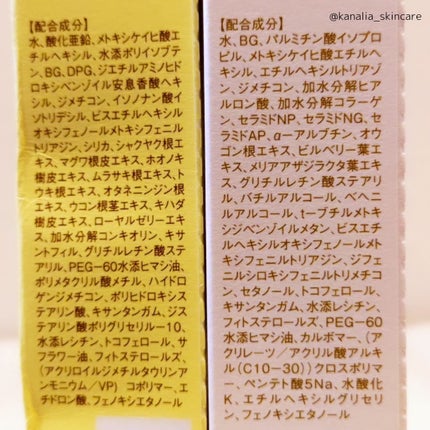 @kanalia_skincare
【配合成分】
水、酸化亜鉛、メトキシケイヒ酸エ
チルヘキシル、水添ポリイソブテ
ン、BG、DPG、ジエチルアミノヒド
ロキシベンゾイル安息香酸ヘキ
シル、ジメチコン、イソノナン酸
イソトリデシル、ビスエチルヘキシル
オキシフェノールメトキシフェニル
トリアジン、シリカ、シャクヤク根エ
キス、マグワ根皮エキス、ホオノキ
樹皮エキス、ムラサキ根エキス、ト
ウキ根エキス、オタネニンジン根
エキス、ウコン根茎エキス、キハダ
樹皮エキス、ローヤルゼリーエキ
ス、加水分解コンキオリン、キサ
ントフィル、グリチルレチン酸ステ
アリル、PEG-60水添ヒマシ油、
ポリメタクリル酸メチル、ハイドロ
ゲンジメチコン、ポリヒドロキシス
テアリン酸、キサンタンガム、ジス
テアリン酸ポリグリセリル-10、
水添レシチン、トコフェロール、サ
フラワー油、フィトステロールズ、
（アクリロイルジメチルタウリンア
ンモニウム／VP）コポリマー、エ
チドロン酸、フェノキシエタノール
【配合成分】
水、BG、パルミチン酸イソプロ
ピル、メトキシケイヒ酸エチルヘ
キシル、エチルヘキシルトリアゾ
ン、ジメチコン、加水分解ヒア
ルロン酸、加水分解コラーゲ
ン、セラミドNP、セラミドNG、セ
ラミドAP、α-アルブチン、オウ
ゴン根エキス、ビルベリー葉エ
キス、メリアアザジラクタ葉エキ
ス、グリチルレチン酸ステアリ
ル、バチルアルコール、ベヘニ
ルアルコール、t-ブチルメトキ
シジベンゾイルメタン、ビスエチ
ルヘキシルオキシフェノールメト
キシフェニルトリアジン、ジフェ
ニルシロキシフェニルトリメチコ
ン、セタノール、トコフェロール、
キサンタンガム、水添レシチン、
フィトステロールズ、PEG-60
水添ヒマシ油、カルボマー、（ア
クリレーツ／アクリル酸アルキ
ル（C10-30））クロスポリマ
ー、ペンテト酸5Na、水酸化
K、エチルヘキシルグリセリ
ン、フェノキシエタノール